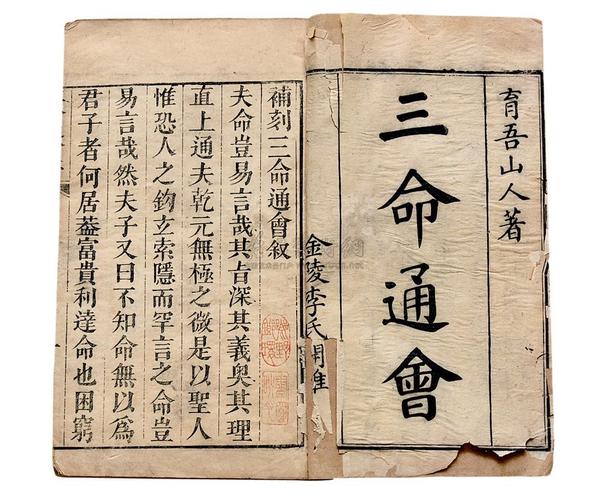 育吾山人著
三命通會
金陵李氏
補刻三命通會叙
夫命豈易言哉其旨深其義奥其理
直上通夫乾元無極之微是以聖人
惟恐人之鈎立索隱而罕言之命豈
易言哉然夫子又曰不知命無以爲
君子者何居葢富貴利達命也困窮